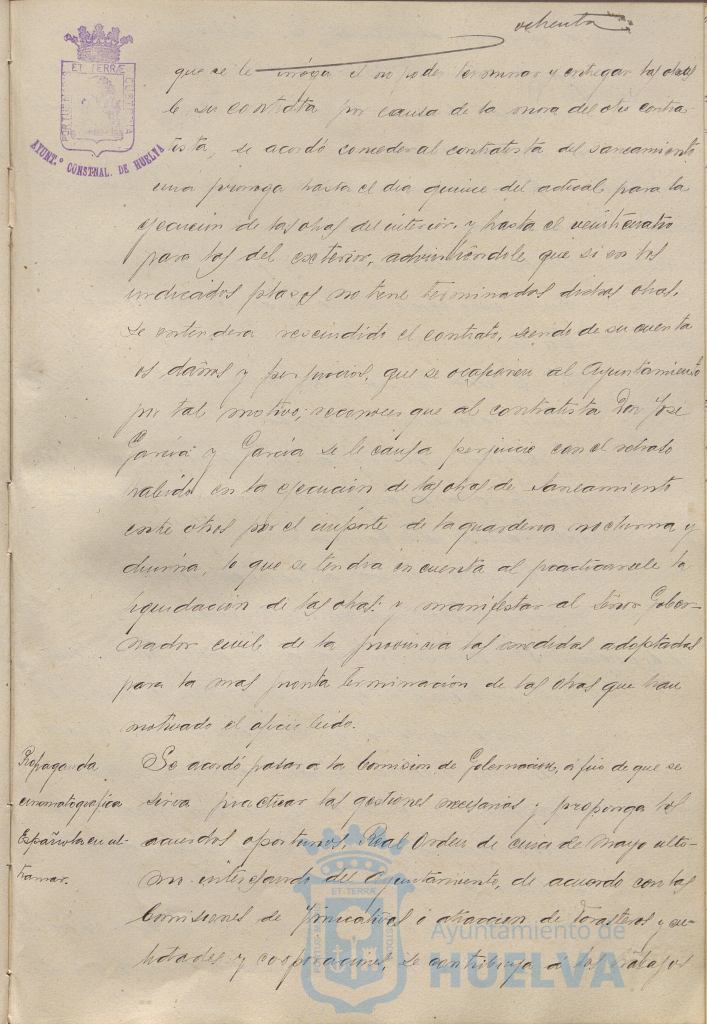 ochenta
ET TERRÆ
PORTUS MARIS
CUSTODIA
AYUNT.º CONST.NAL DE HUELVA
que se le irroga el no poder terminar y entregar las obras
de su contrata por causa de la mora del otro contra-
tista, se acordó conceder al contratista del saneamiento
una prorroga hasta el dia quince del actual para la
ejecucion de las obras del interior, y hasta el veinticuatro
para las del exterior, advirtiéndole que si en los
indicados plazos no tiene terminadas dichas obras,
se entenderá rescindido el contrato, siendo de su cuenta
os daños y perjuicios, que se ocasionen al Ayuntamiento
por tal motivo; reconocer que al contratista Don José
García y García se le causa perjuicio con el retraso
habido en la ejecución de las obras de saneamiento
entre otros por el importe de la guarderia nocturna y
diurna, lo que se tendrá en cuenta al practicarsele la
liquidación de las obras; y manifestar al Señor Gober-
nador civil de la provincia las medidas adoptadas
para la mas pronta terminación de las obras que han
motivado el oficio leido.
Propaganda
cinematográfica
Española en ul-
tramar.
Se acordó pasar a la Comision de Gobernacion, á fin de que se
sirva practicar las gestiones necesarias y proponga los
acuerdos oportunos, Real Orden de de Mayo ulti-
mo interesando del Ayuntamiento, de acuerdo con las
Comisiones de Iniciativas ó atraccion de forasteros y en-
tidades y corporaciones, se contribuya á los trabajos
ET TERRÆ
Ayuntamiento de
HUELVA